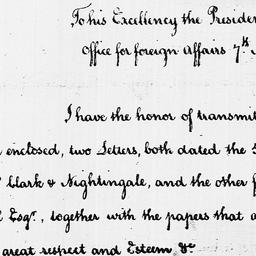 To his Excellency the Presiden
Office for foreign Affairs 7th
I have the honor of transmit
enclosed, two Letters, both dated the
Clark & Nightingale, and the other f
Esqr., together with the papers that a
great respect and Esteem &c